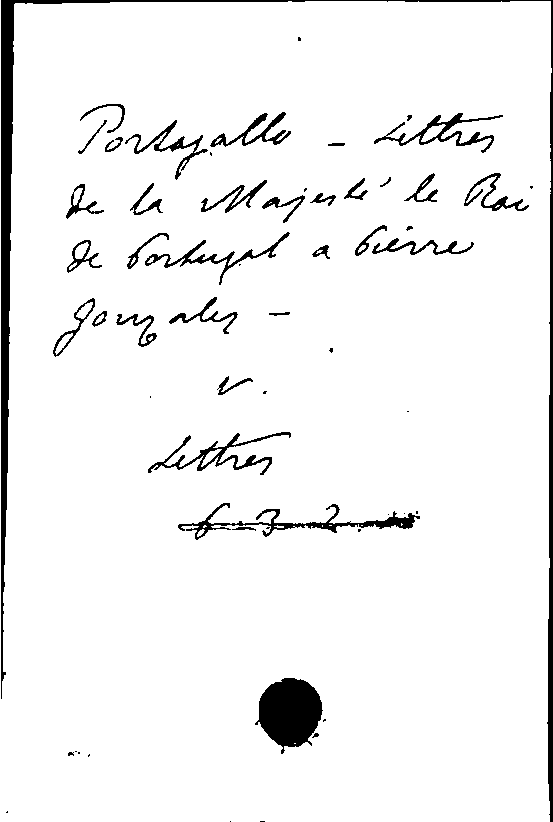 Portogallo - Lettres
de la Majesté le Roi
de Portugal a Pierre
Gonzales -
v.
Lettres
632